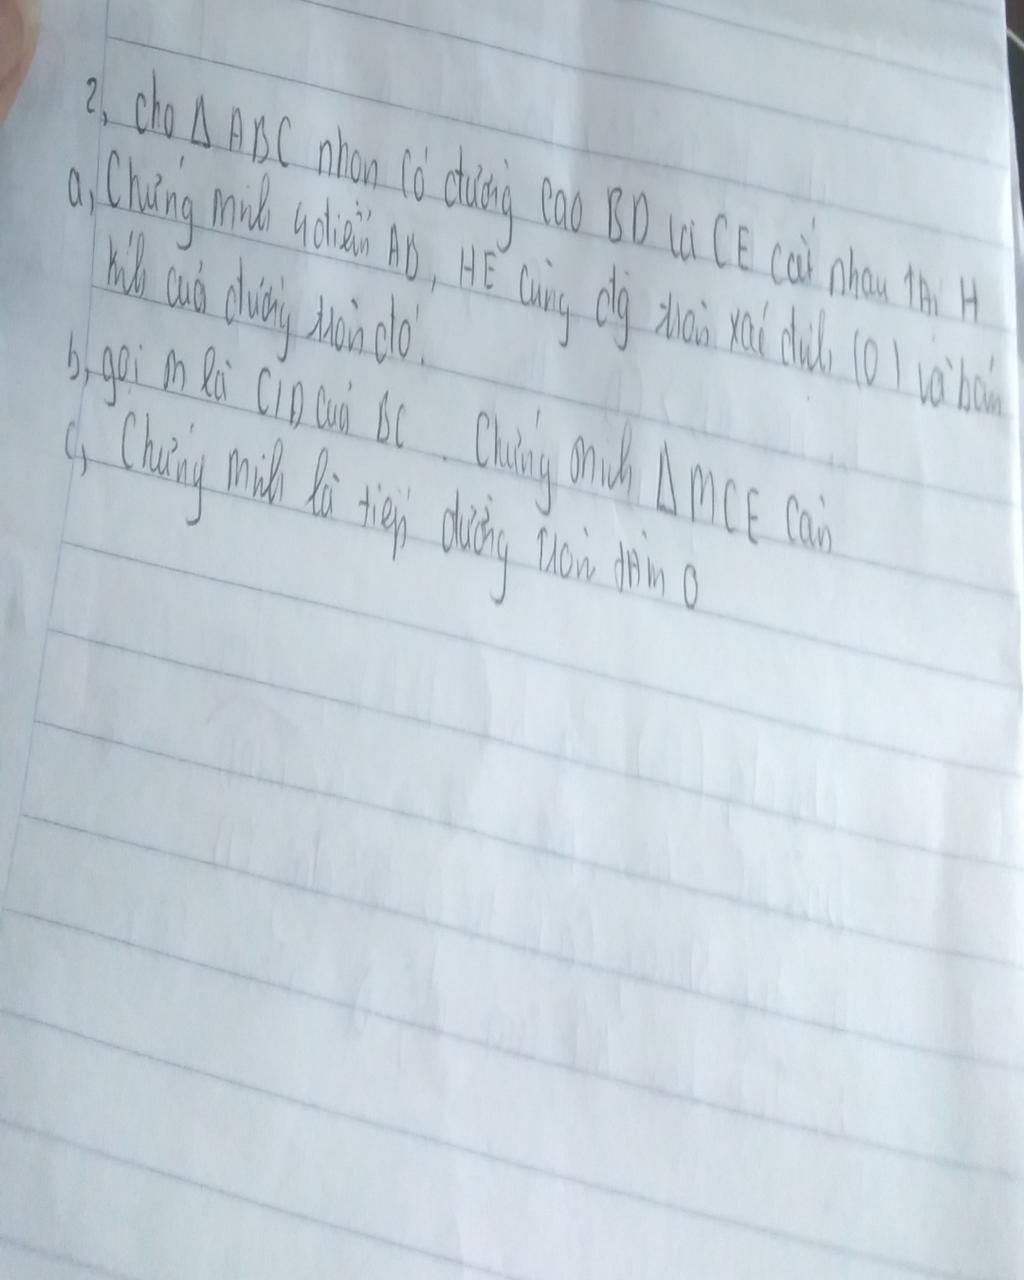 2, cho Δ ABC nhọn có đường cao BD và CE cắt nhau tại H
a, Chứng minh 4 điểm AD, HE cùng đg tròn xác định (O) và bán
kính của đường tròn đó.
b, gọi M là của BC. Chứng minh Δ MCE cân
c, Chứng minh là tiếp đường tròn tâm O